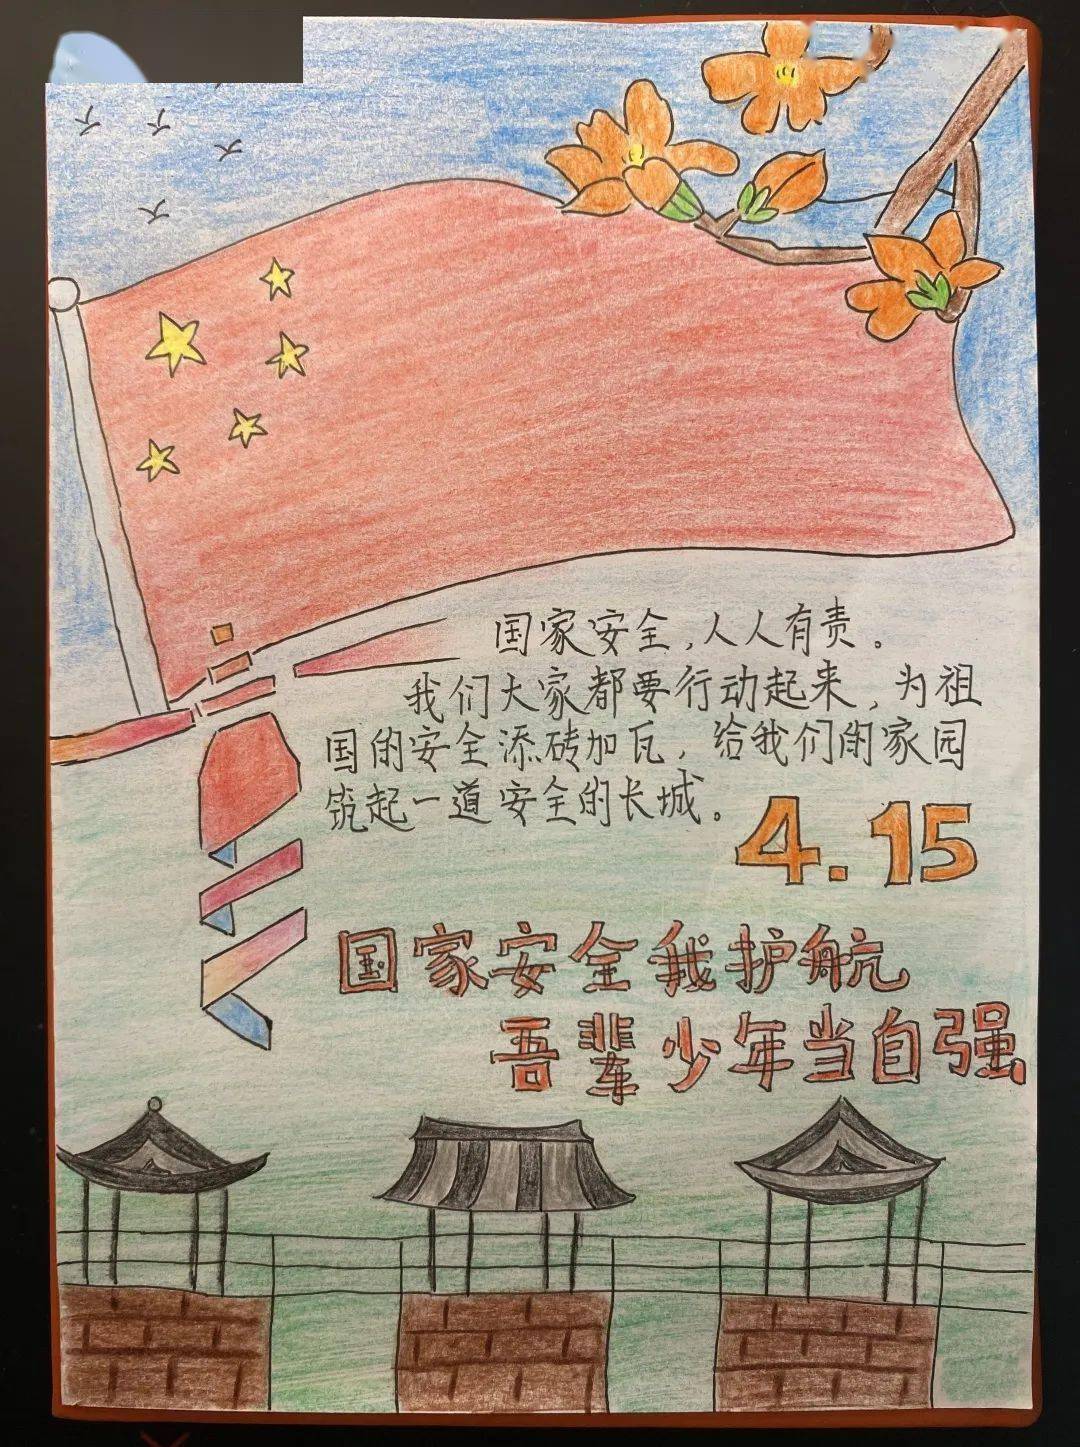 国家安全,人人有责。
我们大家都要行动起来,为祖
国的安全添砖加瓦,给我们的家园
筑起一道安全的长城。
4.15
国家安全我护航
吾辈少年当自强